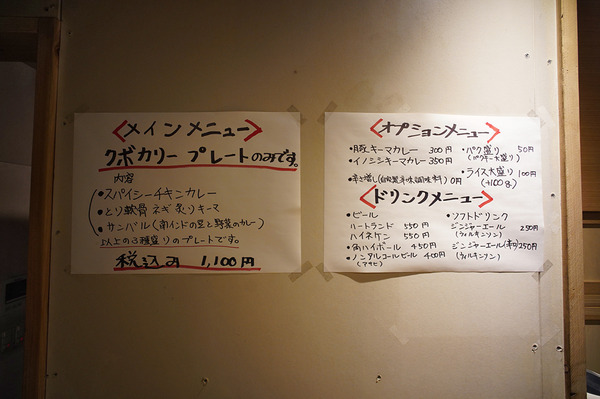 <メインメニュー>
クボカリー プレートのみです。
内容
・スパイシーチキンカレー
・とり軟骨 ネギ 炙りキーマ
・サンバル(南インドの豆と野菜のカレー)
以上の3種盛りのプレートです。
税込み 1,100円
<オプションメニュー>
・豚キーマカレー 300円
・イノシシキーマカレー 350円
・辛さ増し(自家製辛味調味料) 0円
・パク盛り 50円
(パクチー大盛り)
・ライス大盛り 100円
(+100g)
<ドリンクメニュー>
・ビール
ハートランド 550円
ハイネケン 550円
・角ハイボール 450円
・ノンアルコールビール 400円
(アサヒ)
・ソフトドリンク
ジンジャーエール 250円
(ウィルキンソン)
ジンジャーエール(辛口) 250円
(ウィルキンソン)